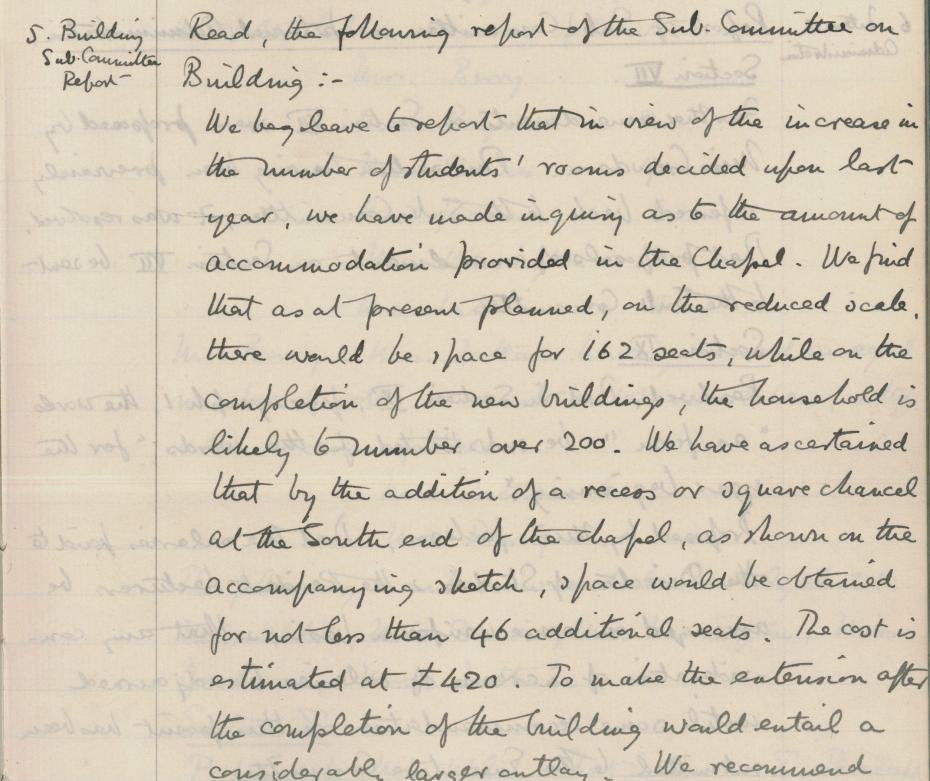 5. Building
Sub-Committee
Report
Read, the following report of the Sub-Committee on
Building :-
We beg leave to report that in view of the increase in
the number of students' rooms decided upon last
year, we have made inquiry as to the amount of
accommodation provided in the Chapel. We find
that as at present planned, on the reduced scale,
there would be space for 162 seats, while on the
completion of the new buildings, the household is
likely to number over 200. We have ascertained
that by the addition of a recess or square chancel
at the South end of the chapel, as shown on the
accompanying sketch, space would be obtained
for not less than 46 additional seats. The cost is
estimated at £420. To make the extension after
the completion of the building would entail a
considerably larger outlay. We recommend